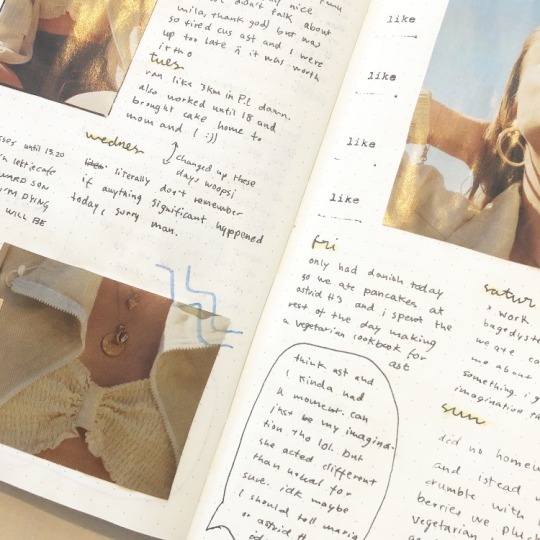 nice
we didn't talk about
mila, thank god) but was
so tired cus ast and I were
up too late ñ it was worth
it tho
tues
ran like 3km in P.E damn.
also worked until 18 and
brought cake home to
mom and I :))
wednes
changed up these
days woops!
literally don't remember
if anything significant hyppened
today, sorry man.
until 15.20
DYING
WILL BE
like
like
like
like
fri
only had danish today
so we ate pancakes at
astrid #3 and i spent the
rest of the day making
a vegetarian cookbook for
ast
think ast and
I kinda had
a moment. can
just be my imagina-
tion tho lol. but
she acted different
than usual for
sure. idk maybe
I should tell maria
or astrid H
satur
* work
we are
me about
something. i
imagination
sun
did no homew
and istead
crumble with
berries we
vegetarian